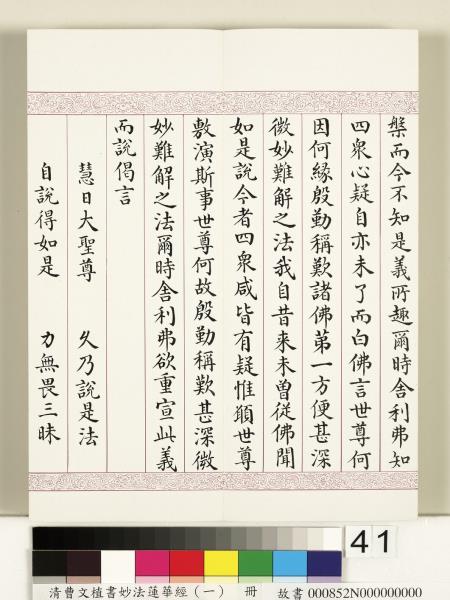 槃而今不知是義所趣爾時舍利弗知
四衆心疑自亦未了而白佛言世尊何
因何緣殷勤稱歎諸佛第一方便甚深
微妙難解之法我自昔來未曾從佛聞
如是說今者四衆咸皆有疑惟願世尊
敷演斯事世尊何故殷勤稱歎甚深微
妙難解之法爾時舍利弗欲重宣此義
而說偈言
慧日大聖尊 久乃說是法
自說得如是 力無畏三昧
41
清曹文植書妙法蓮華經(一) 冊 故書 000852N000000000